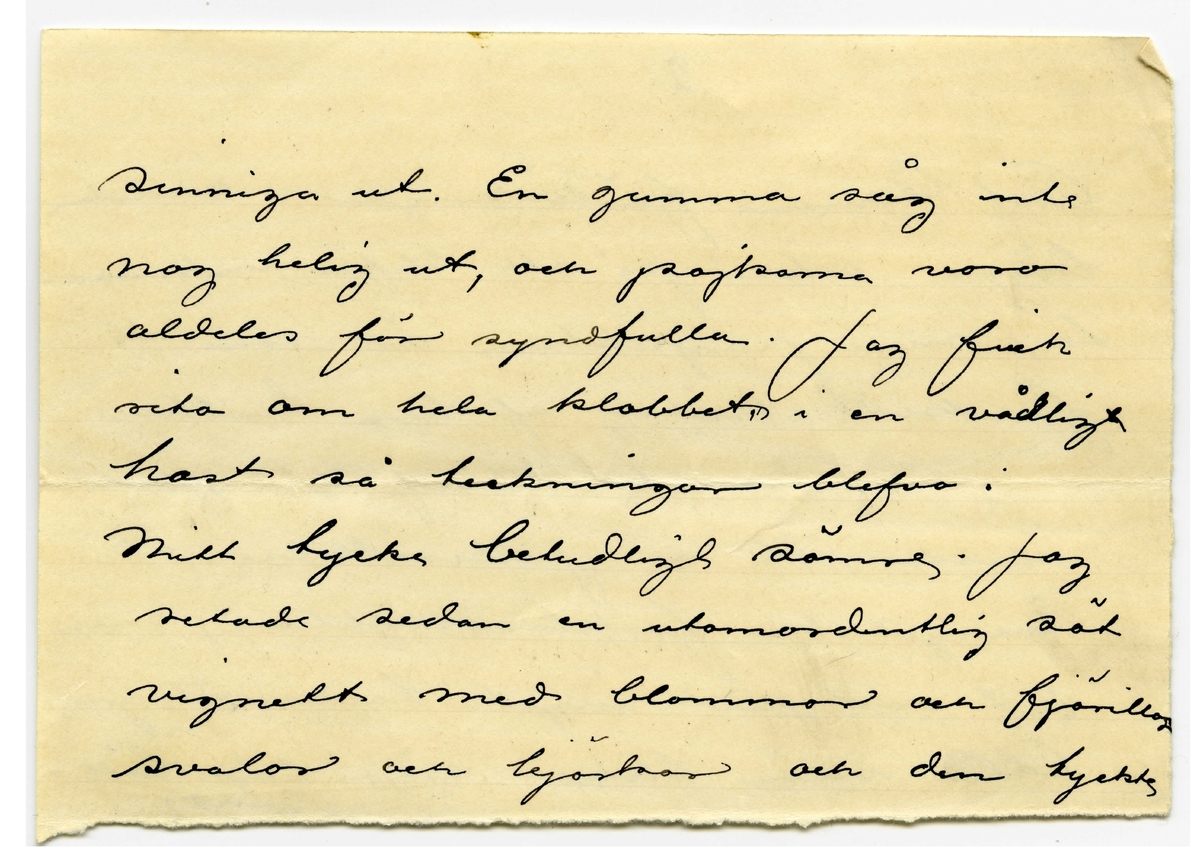 sinniga ut. En gumma såg inte
nog helig ut, och pojkarna voro
aldeles för syndfulla. Jag fick
rita om hela klabbet i en vådligt
hast så teckningar blefvo i
mitt tycke betydligt sämre. Jag
ritade sedan en utomordentlig söt
vignett med blommor och fjärillar
svalor och björkar och den tyckte